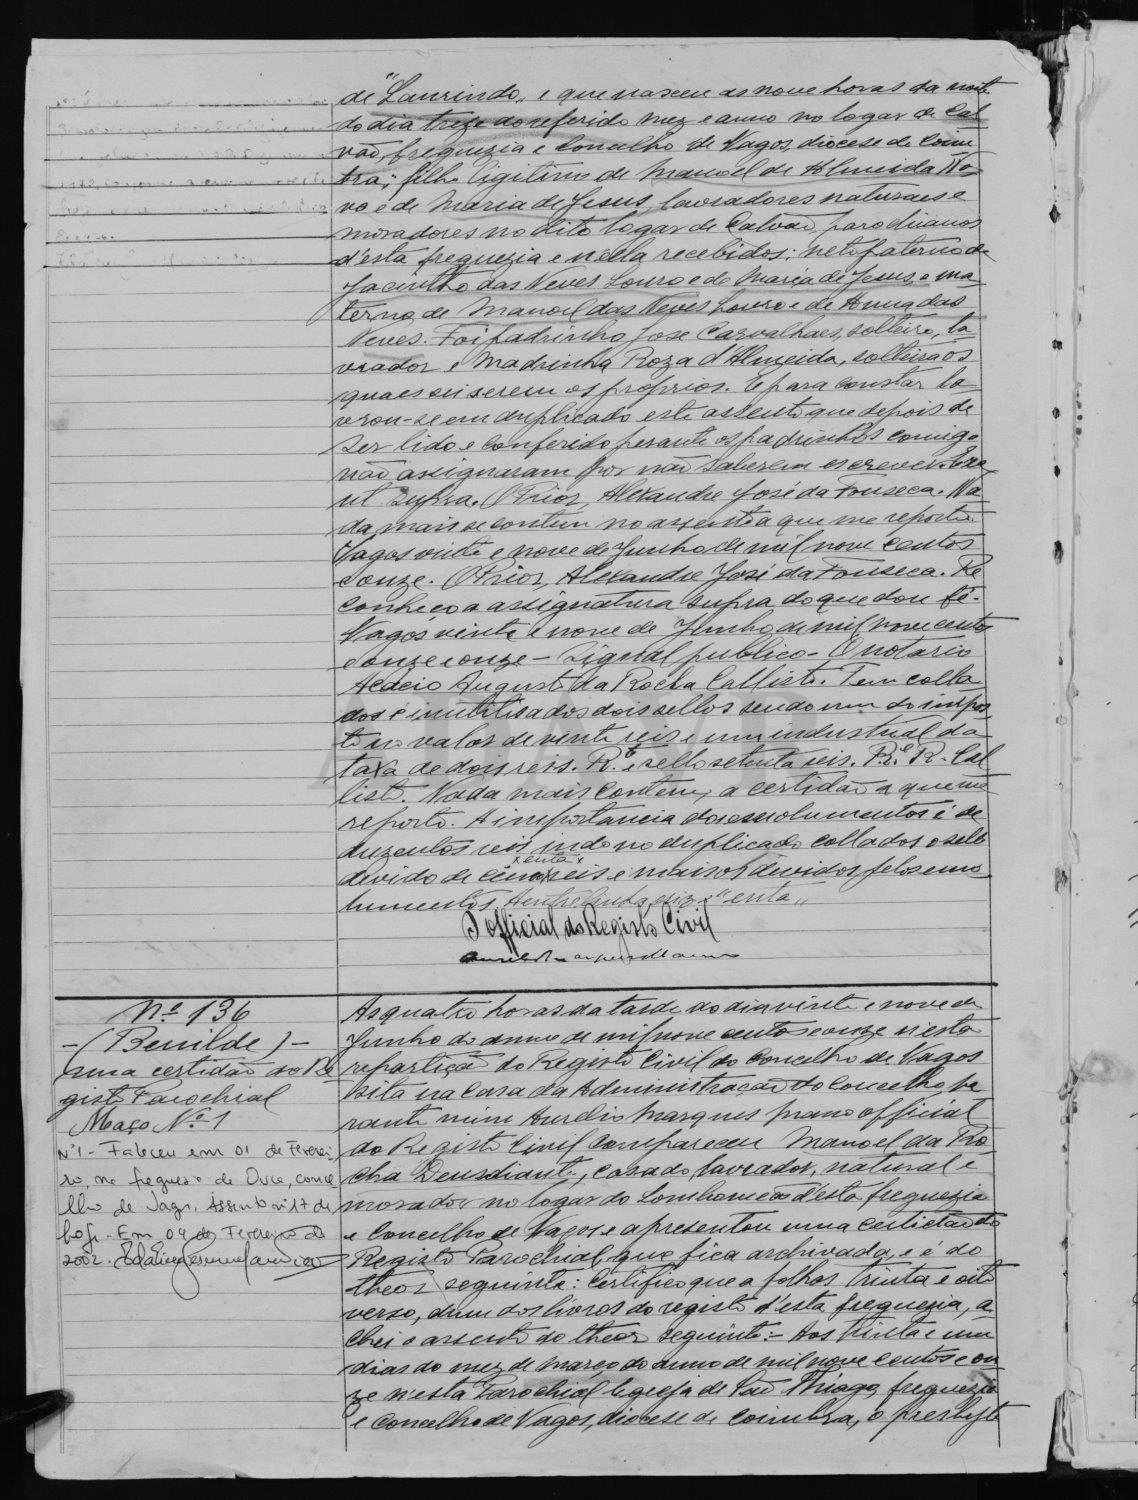 de "Laurindo„ e que nasceu as nove horas da noite
do dia treze do referido mez e anno no logar de Cal
vão, freguezia e Concelho de Vagos, diocese de Coim
bra; filho ligitimo de Manoel de Almeida No
vo e de Maria de Jesus, lavradores naturaes e
moradores no dito logar de Calvão, parochianos
d'esta freguezia e nella recebidos; neto paterno de
Jacintho das Neves Louro e de Maria de Jesus, e ma
terno, de Manoel das Neves Louro e de Anna das
Neves. Foi padrinho José Carvalhaes, solteiro, la
vrador e Madrinha Roza d'Almeida, solteira os
quaes sei serem os proprios. E para constar la
vrou-se em duplicado este assento que depois de
ser lido e conferido perante os padrinhos comigo
não assignaram por não saberem escrever. Era
ut supra. O Prior, Alexandre José da Fonseca. Na
da mais se contem no assento a que me reporto.
Vagos vinte e nove de Junho de mil nove centos
e onze. O Prior, Alexandre José da Fonseca. Re
conheço a assignatura supra do que dou fé.
Vagos vinte e nove de Junho de mil nove centos
e onze e onze – Signal publico – O notario
Acacio Augusto da Rocha Callisto. Tem colla
dos e inutilisados dois sellos sendo um do impos
to no valor de vinte reis e um industrial da
taxa de dois reis. R.º e sello setenta reis. R.º R. Cal
listo. Nada mais contem a certidão a que me
reporto. A importancia dos emolumentos é de
duzentos reis indo no duplicado collados o sello
xentax
devido de cinco reis e mais os devidos pelos emo
lumentos. A entrelinha diz "enta„
O official do Registo Civil
Nº 136
-(Benilde)-
uma certidão do Re
gisto Parochial
Maço Nº 1
Nº1 - Faleceu em 01 de Feverei
ro, na freguesia de Ouca, conce
lho de Vagos. Assento nº 17 de
hoje. Em 04 de Fevereiro de
2002.
As quatro horas da tarde do dia vinte e nove de
Junho do anno de mil nove centos e onze n'esta
repartição do Registo Civil do Concelho de Vagos
sita na Casa da Administração do Concelho pe
rante mim Aurelio Marques Mano official
do Registo Civil compareceu Manoel da Ro
cha Deusdiante, casado, lavrador, natural e
morador no logar do Lombomeão d'esta freguezia
e Concelho de Vagos e apresentou uma certidão do
Registo Parochial, que fica archivada, e é do
theor seguinte: Certifico que a folhas trinta e oito
verso, d'um dos livros do registo d'esta freguezia, a
chei o assento do theor seguinte:- Aos trinta e um
dias do mez de Março do anno de mil nove centos e on
ze n'esta Parochial Egreja de São Thiago, freguezia
e Concelho de Vagos, diocese de Coimbra, o presbyte